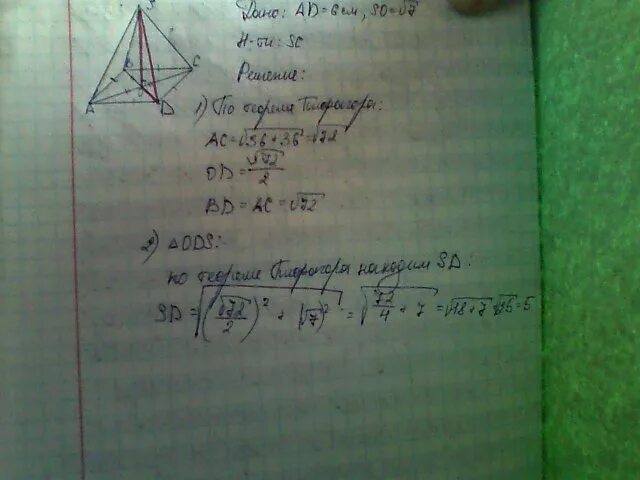 S
Дано: AD = 6 см, SO = √7
Н-ти: SC
Решение:
A
B
C
D
O
1) По теореме Пифагора:
AC = √36 + 36 = √72
OD = √72 / 2
BD = AC = √72
2) △ODS:
по теореме Пифагора находим SD:
SD = √(√72 / 2)² + (√7)² = √72 / 4 + 7 = √18 + 7 √25 = 5